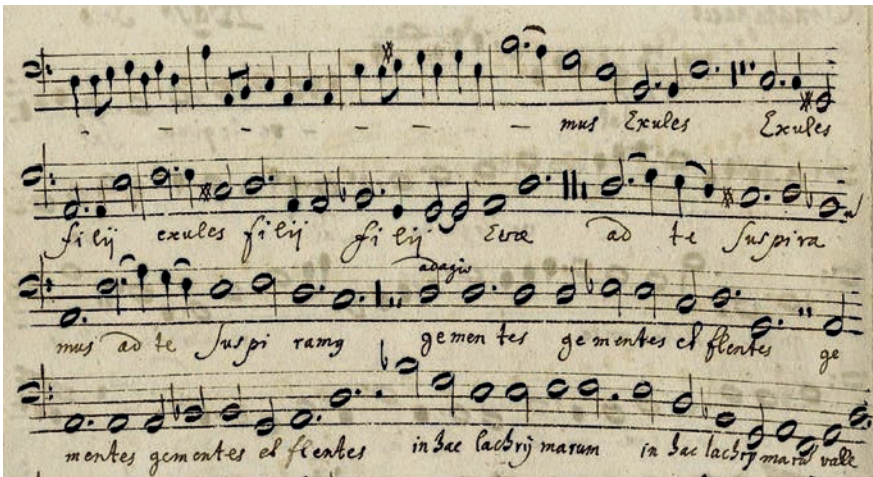 mus Exules Exules
filij exules filij filij Evæ ad te Suspira
adagio
mus ad te Suspi ramq gementes gementes et flentes ge
mentes gementes et flentes in hac lachrÿmarum in hac lachrÿmarū valle